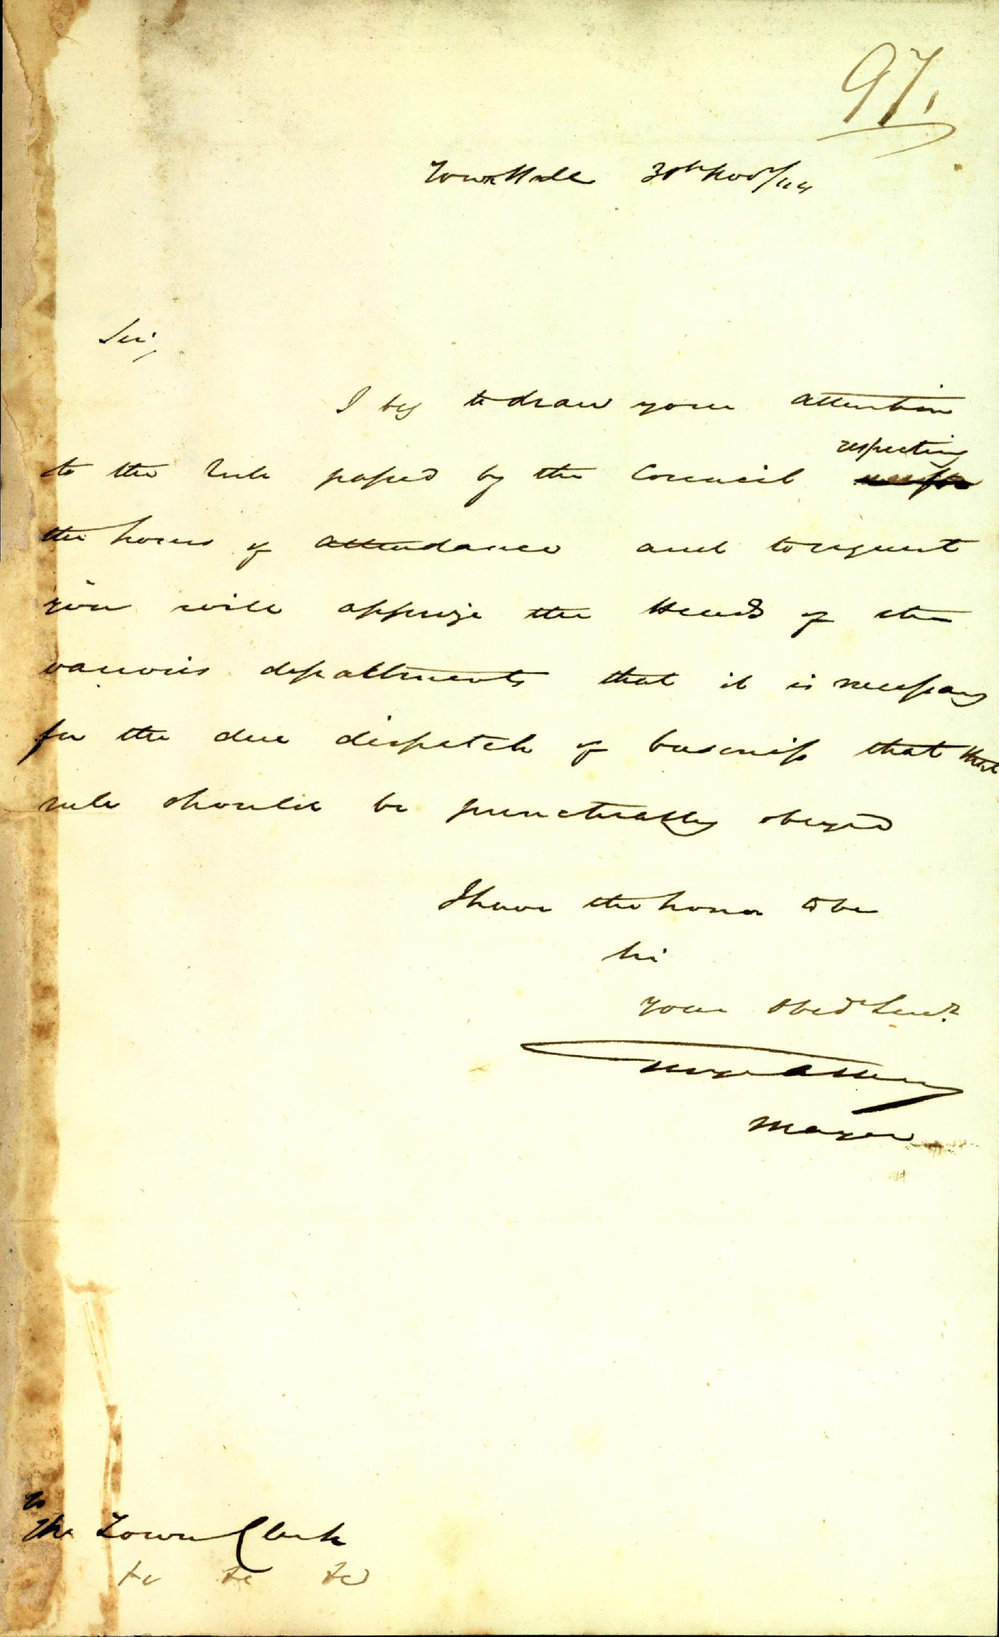 97.
Town Hall 30th Novr/44
Sir,
I beg to draw your attention
respecting
to the rule passed by the Council
the hours of attendance and to request
you will apprize the Heads of the
various departments that it is necessary
for the due dispatch of business that that
rule should be punctually obeyed
I have the honor to be
Sir
Your Obedt Servt
Mayor
To
The Town Clerk
&c &c &c